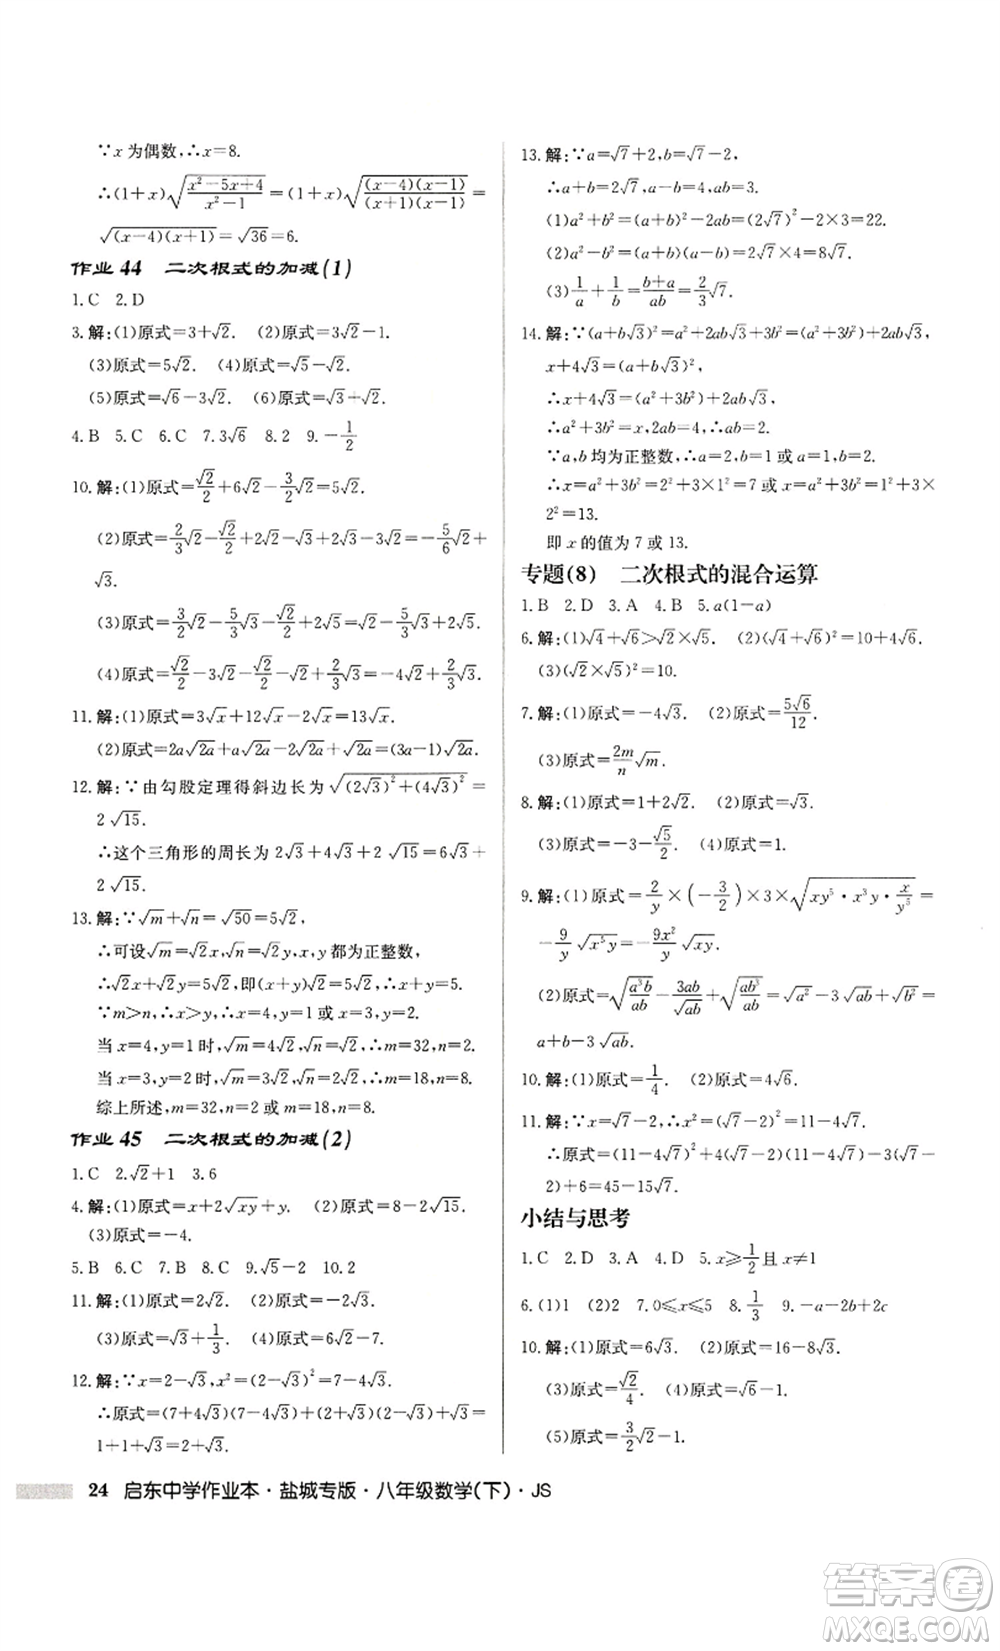 ∵x为偶数,∴x=8.
∴(1+x)√((x²-5x+4)/(x²-1))=(1+x)√((x-4)(x-1)/((x+1)(x-1)))=
√((x-4)(x+1))=√36=6.
作业44 二次根式的加减(1)
1.C 2.D
3.解:(1)原式=3+√2. (2)原式=3√2-1.
(3)原式=5√2. (4)原式=√5-√2.
(5)原式=√6-3√2. (6)原式=√3+√2.
4.B 5.C 6.C 7.3√6 8.2 9.-1/2
10.解:(1)原式=√2/2+6√2-3/2√2=5√2.
(2)原式=2/3√2-√2/2+2√3+√2-3√3=-5/6√2-
√3.
(3)原式=3/2√2-5/3√3-√2/2+5√3=√2+10/3√3.
(4)原式=√2/2-3√2-√2+2√3=2√3-7/2√2.
11.解:(1)原式=3√x+12√x-2√x=13√x.
(2)原式=2a√2a+a√2a-√2a=(3a-1)√2a.
12.解:∵由勾股定理得斜边长为√((2√3)²+(4√3)²)=
2√15.
∴这个三角形的周长为2√3+4√3+2√15=6√3+
2√15.
13.解:∵√m+√n=√50=5√2,
∴可设√m=√2x,√n=√2y,x,y都为正整数,
∴√2x+√2y=5√2,即√2(x+y)=5√2,∴x+y=5.
∵m>n,∴x>y,∴x=4,y=1或x=3,y=2.
当x=4,y=1时,√m=4√2,√n=√2,∴m=32,n=2.
当x=3,y=2时,√m=3√2,√n=2√2,∴m=18,n=8.
综上所述,m=32,n=2或m=18,n=8.
作业45 二次根式的加减(2)
1.C 2.√2+1 3.6
4.解:(1)原式=x+2√xy+y. (2)原式=8-2√15.
(3)原式=-4.
5.B 6.C 7.C 8.C 9.√5-2 10.2
11.解:(1)原式=2√2. (2)原式=√3.
(3)原式=√3+1/3. (4)原式=6√2-7.
12.解:∵x=2-√3,x²=(2-√3)²=7-4√3,
∴原式=(7+4√3)(7-4√3)+(2+√3)(2-√3)+√3=
1+1+√3=2+√3.
13.解:∵a=√7+2,b=√7-2,
∴a+b=2√7,ab=7-4=3.
(1)a²+b²=(a+b)²-2ab=(2√7)²-2×3=22.
(2)a²-b²=(a+b)(a-b)=2√7×4=8√7.
(3)1/a+1/b=(b+a)/ab=2/3√7.
14.解:∵(a+b√3)²=a²+2ab√3+3b²=a²+3b²+2ab√3,
x+4√3=(a+b√3)²,
∴x+4√3=(a²+3b²)+2ab√3,
∴a²+3b²=x,2ab=4,∴ab=2.
∵a,b均为正整数,∴a=2,b=1或a=1,b=2.
∴x=a²+3b²=2²+3×1²=7或x=a²+3b²=1²+3×
2²=13.
即x的值为7或13.
专题(8) 二次根式的混合运算
1.B 2.D 3.A 4.B 5.a(1-a)
6.解:(1)√4+√6>√2×√5. (2)(√4+√6)²=10+4√6.
(3)(√2×√5)²=10.
7.解:(1)原式=-4√3. (2)原式=5√6/12.
(3)原式=2m/n√m.
8.解:(1)原式=1+2√2. (2)原式=√3.
(3)原式=-3-√5/2. (4)原式=2.
9.解:(1)原式=2/y×(-3/2)×3×√(xy⁵·x³y·x/y⁵)=
-9/y√(x⁵y)=-9x²/y√xy.
(2)原式=√(a³b/ab)-3ab/√ab+√(ab³/ab)=√a²-3√ab+√b²=
a+b-3√ab.
10.解:(1)原式=1/4. (2)原式=4√6.
11.解:∵x=√7-2,∴x²=(√7-2)²=11-4√7,
∴原式=(11-4√7)(11+4√7)-2(√7-2)(√7+
2)+6=45-6-√7=39-√7.
小结与思考
1.C 2.D 3.A 4.D 5.x≥1/2且x≠1
6.(1)1 (2)2 7.0≤x≤5 8.1/3 9.-a-2b+2c
10.解:(1)原式=6√3. (2)原式=16-8√3.
(3)原式=√2/4. (4)原式=√6-1.
(5)原式=5√3/3.
24 启东中学作业本·盐城专版·八年级数学(下)·JS
答案卷
MXQE.COM